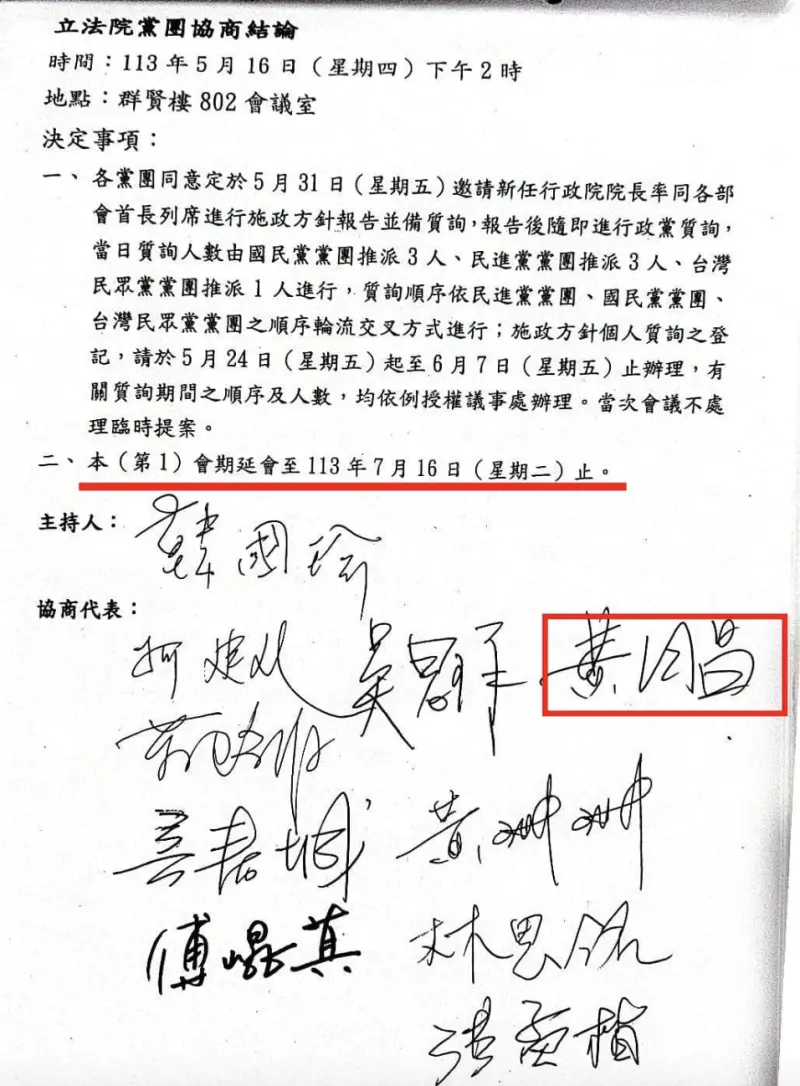 立法院黨團協商結論
時間：113 年 5 月 16 日（星期四）下午 2 時
地點：群賢樓 802 會議室
決定事項：
一、各黨團同意定於 5 月 31 日（星期五）邀請新任行政院院長率同各部
會首長列席進行施政方針報告並備質詢，報告後隨即進行政黨質詢，
當日質詢人數由國民黨黨團推派 3 人、民進黨黨團推派 3 人、台灣
民眾黨黨團推派 1 人進行，質詢順序依民進黨黨團、國民黨黨團、
台灣民眾黨黨團之順序輪流交叉方式進行；施政方針個人質詢之登
記，請於 5 月 24 日（星期五）起至 6 月 7 日（星期五）止辦理，有
關質詢期間之順序及人數，均依例授權議事處辦理。當次會議不處
理臨時提案。
二、本（第 1）會期延會至 113 年 7 月 16 日（星期二）止。
主持人：韓國瑜
協商代表：
柯建銘 黃國昌
吳春城 黃珊珊
傅崐萁 林思銘
洪孟楷